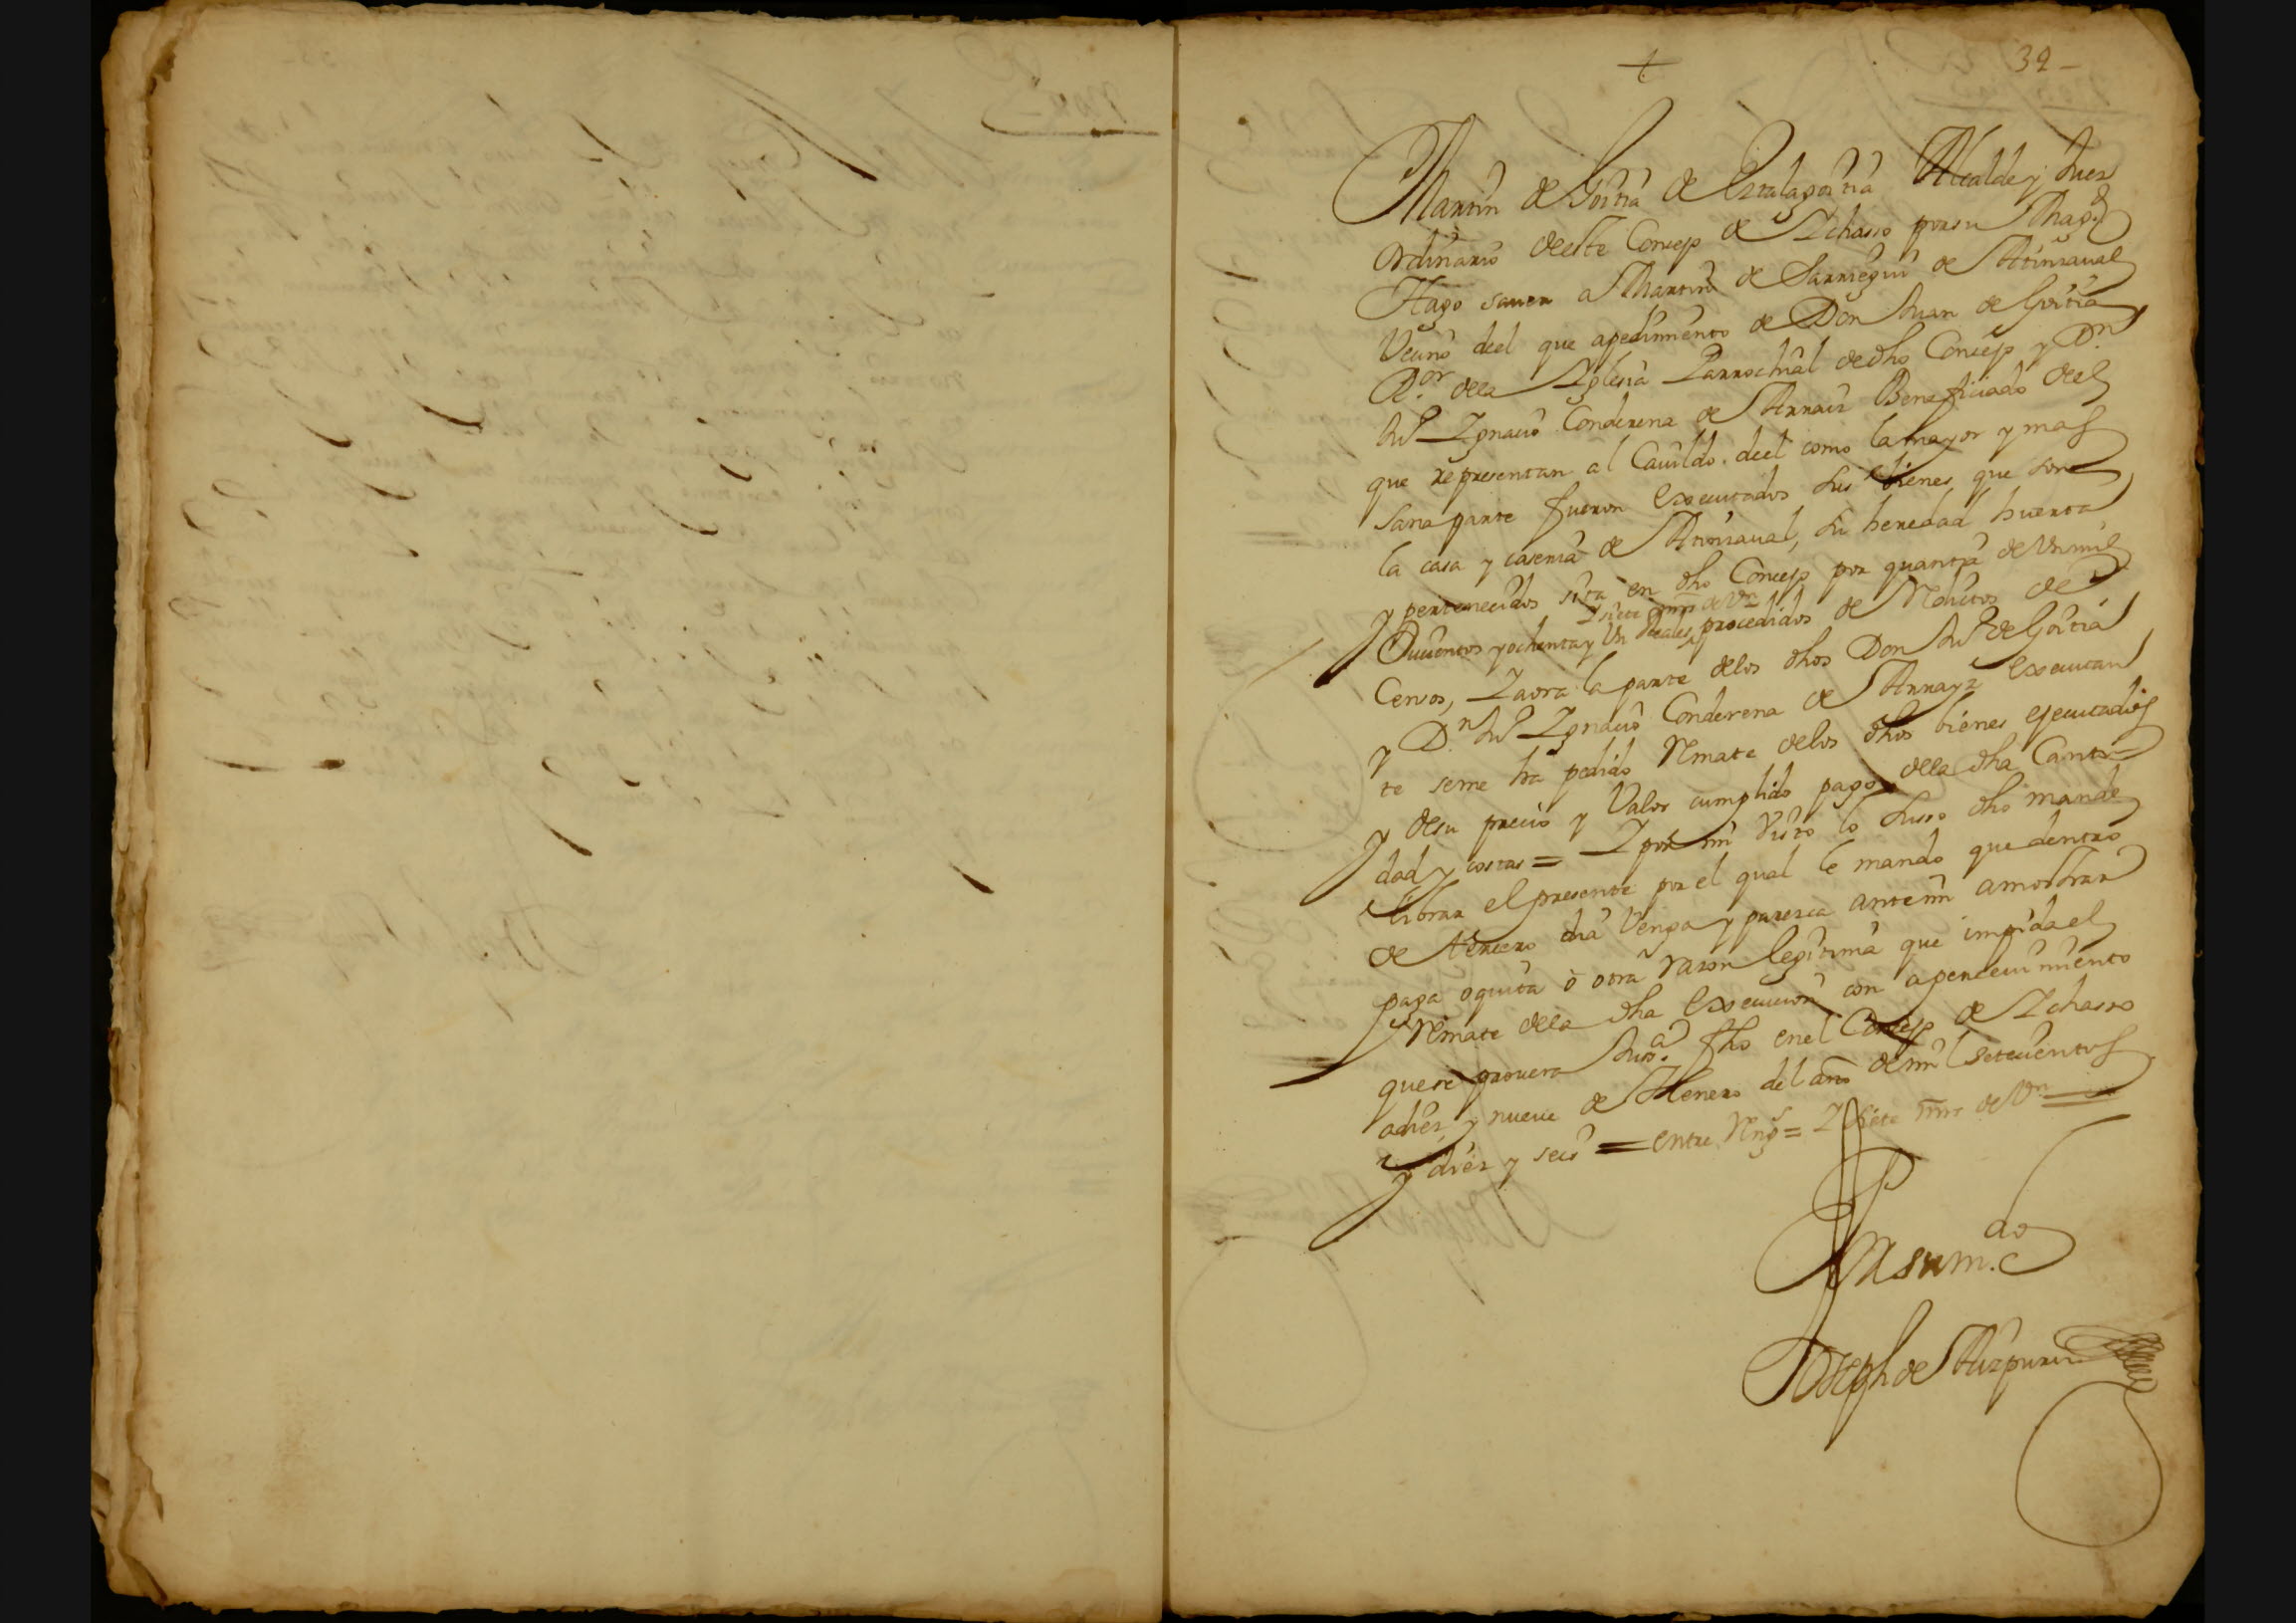 39
Martin de Goitia de Estalagoitia Alcalde y Juez
Ordinario deeste Concejo de Ichasso por su Magd
Hago sauer a Martin de Sarriegui de Atinsaual
Vecino deel que apedimiento de Don Juan de Goitia
Ror dela Iglesia Parrochial dedho Concejo y Dn
Ju Ignacio Conderena de Arraiz Beneficiado deel
que representan al Cauildo deel como la mayor y mas
sana parte fueron executados sus bienes que son
la casa y caseria de Atinsaual, su heredad huerta
y pertenecidos sita en dho Concejo por quantia de Un mil
Y siete mrs de Vn
Ducientos y ochenta y Un Reales procedidos de Reditos de
Censos, Y aora la parte delos dhos Don Ju de Goitia
y Dn Ju Ignacio Conderena de Arrayz executan
te seme ha pedido Remate delos dhos bienes ejecutados
y desu precio y Valor cumplido pago dela dha Canti
dad y costas = Y por mi Visto lo suso dho mande
librar el presente por el qual le mando que dentro
de tercero dia Venga y paresca ante mi amostrar
paga o quita ò otra razon legitima que impida el
Remate dela dha execucion con aperceuimiento
que se prouera Jusa fho enel Concejo de Ichasso
adiez y nueue de Henero del año de mil setecientos
y diez y seis = entre Rengs = Y siete mrs de Vn =
Por su mdo
Joseph de Aizpuru